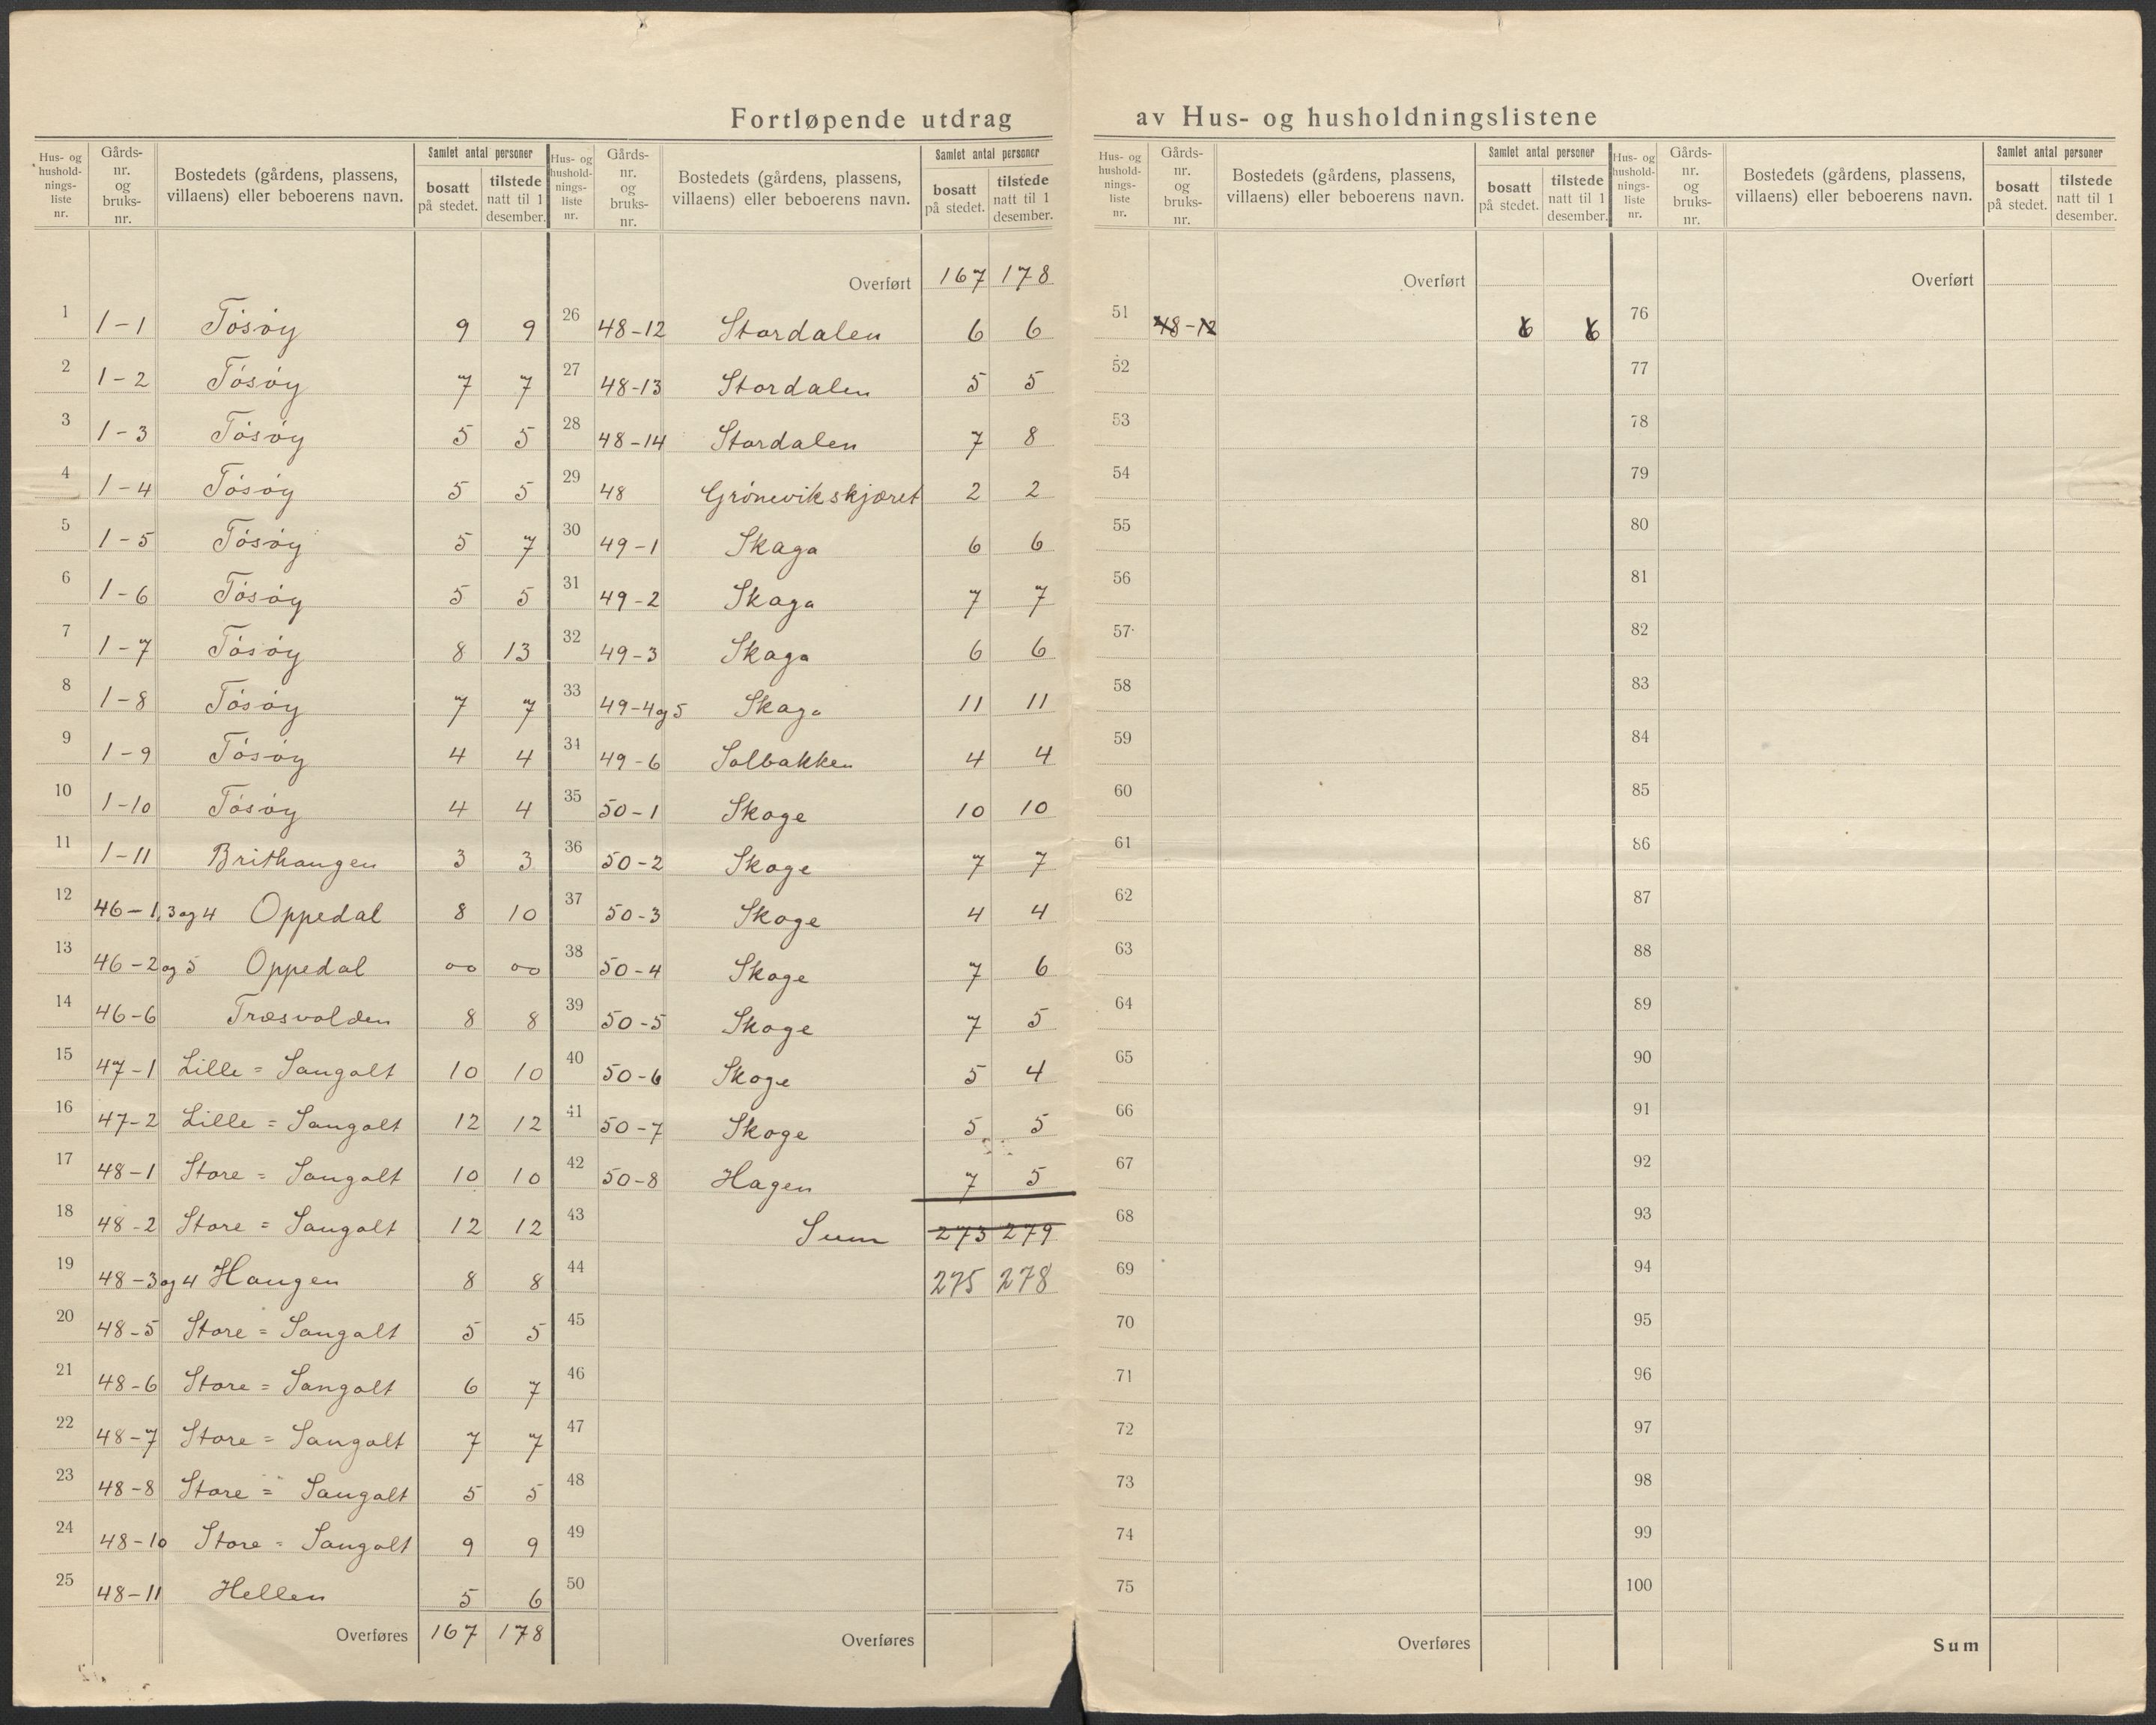 Fortløpende utdrag av Hus- og husholdningslistene
Hus- og husholdnings-liste nr. Gårds-nr. og bruks-nr. Bostedets (gårdens, plassens, villaens) eller beboerens navn. Samlet antal personer bosatt på stedet. tilstede natt til 1 desember.
1 1-1 Tósóy 9 9
2 1-2 Tósóy 7 7
3 1-3 Tósóy 5 5
4 1-4 Tósóy 5 5
5 1-5 Tósóy 5 7
6 1-6 Tósóy 5 5
7 1-7 Tósóy 8 13
8 1-8 Tósóy 7 7
9 1-9 Tósóy 4 4
10 1-10 Tósóy 4 4
11 1-11 Brithaugen 3 3
12 46-1,3og4 Oppedal 8 10
13 46-2og5 Oppedal oo oo
14 46-6 Træsvolden 8 8
15 47-1 Lille = Sangolt 10 10
16 47-2 Lille = Sangolt 12 12
17 48-1 Store = Sangolt 10 10
18 48-2 Store = Sangolt 12 12
19 48-3og4 Haugen 8 8
20 48-5 Store = Sangolt 5 5
21 48-6 Store = Sangolt 6 7
22 48-7 Store = Sangolt 7 7
23 48-8 Store = Sangolt 5 5
24 48-10 Store = Sangolt 9 9
25 48-11 Hellen 5 6
Overføres 167 178
Hus- og husholdnings-liste nr. Gårds-nr. og bruks-nr. Bostedets (gårdens, plassens, villaens) eller beboerens navn. Samlet antal personer bosatt på stedet. tilstede natt til 1 desember.
Overført 167 178
26 48-12 Stordalen 6 6
27 48-13 Stordalen 5 5
28 48-14 Stordalen 7 8
29 48 Grónevikskjæret 2 2
30 49-1 Skaga 6 6
31 49-2 Skaga 7 7
32 49-3 Skaga 6 6
33 49-4og5 Skaga 11 11
34 49-6 Solbakken 4 4
35 50-1 Skoge 10 10
36 50-2 Skoge 7 7
37 50-3 Skoge 4 4
38 50-4 Skoge 7 6
39 50-5 Skoge 7 5
40 50-6 Skoge 5 4
41 50-7 Skoge 5 5
42 50-8 Hagen 7 5
43 Sum 273 279
44 275 278
45
46
47
48
49
50
Overføres
Hus- og husholdnings-liste nr. Gårds-nr. og bruks-nr. Bostedets (gårdens, plassens, villaens) eller beboerens navn. Samlet antal personer bosatt på stedet. tilstede natt til 1 desember.
Overført
51 48-12 6 6
52
53
54
55
56
57
58
59
60
61
62
63
64
65
66
67
68
69
70
71
72
73
74
75
Overføres
Hus- og husholdnings-liste nr. Gårds-nr. og bruks-nr. Bostedets (gårdens, plassens, villaens) eller beboerens navn. Samlet antal personer bosatt på stedet. tilstede natt til 1 desember.
Overført
76
77
78
79
80
81
82
83
84
85
86
87
88
89
90
91
92
93
94
95
96
97
98
99
100
Sum